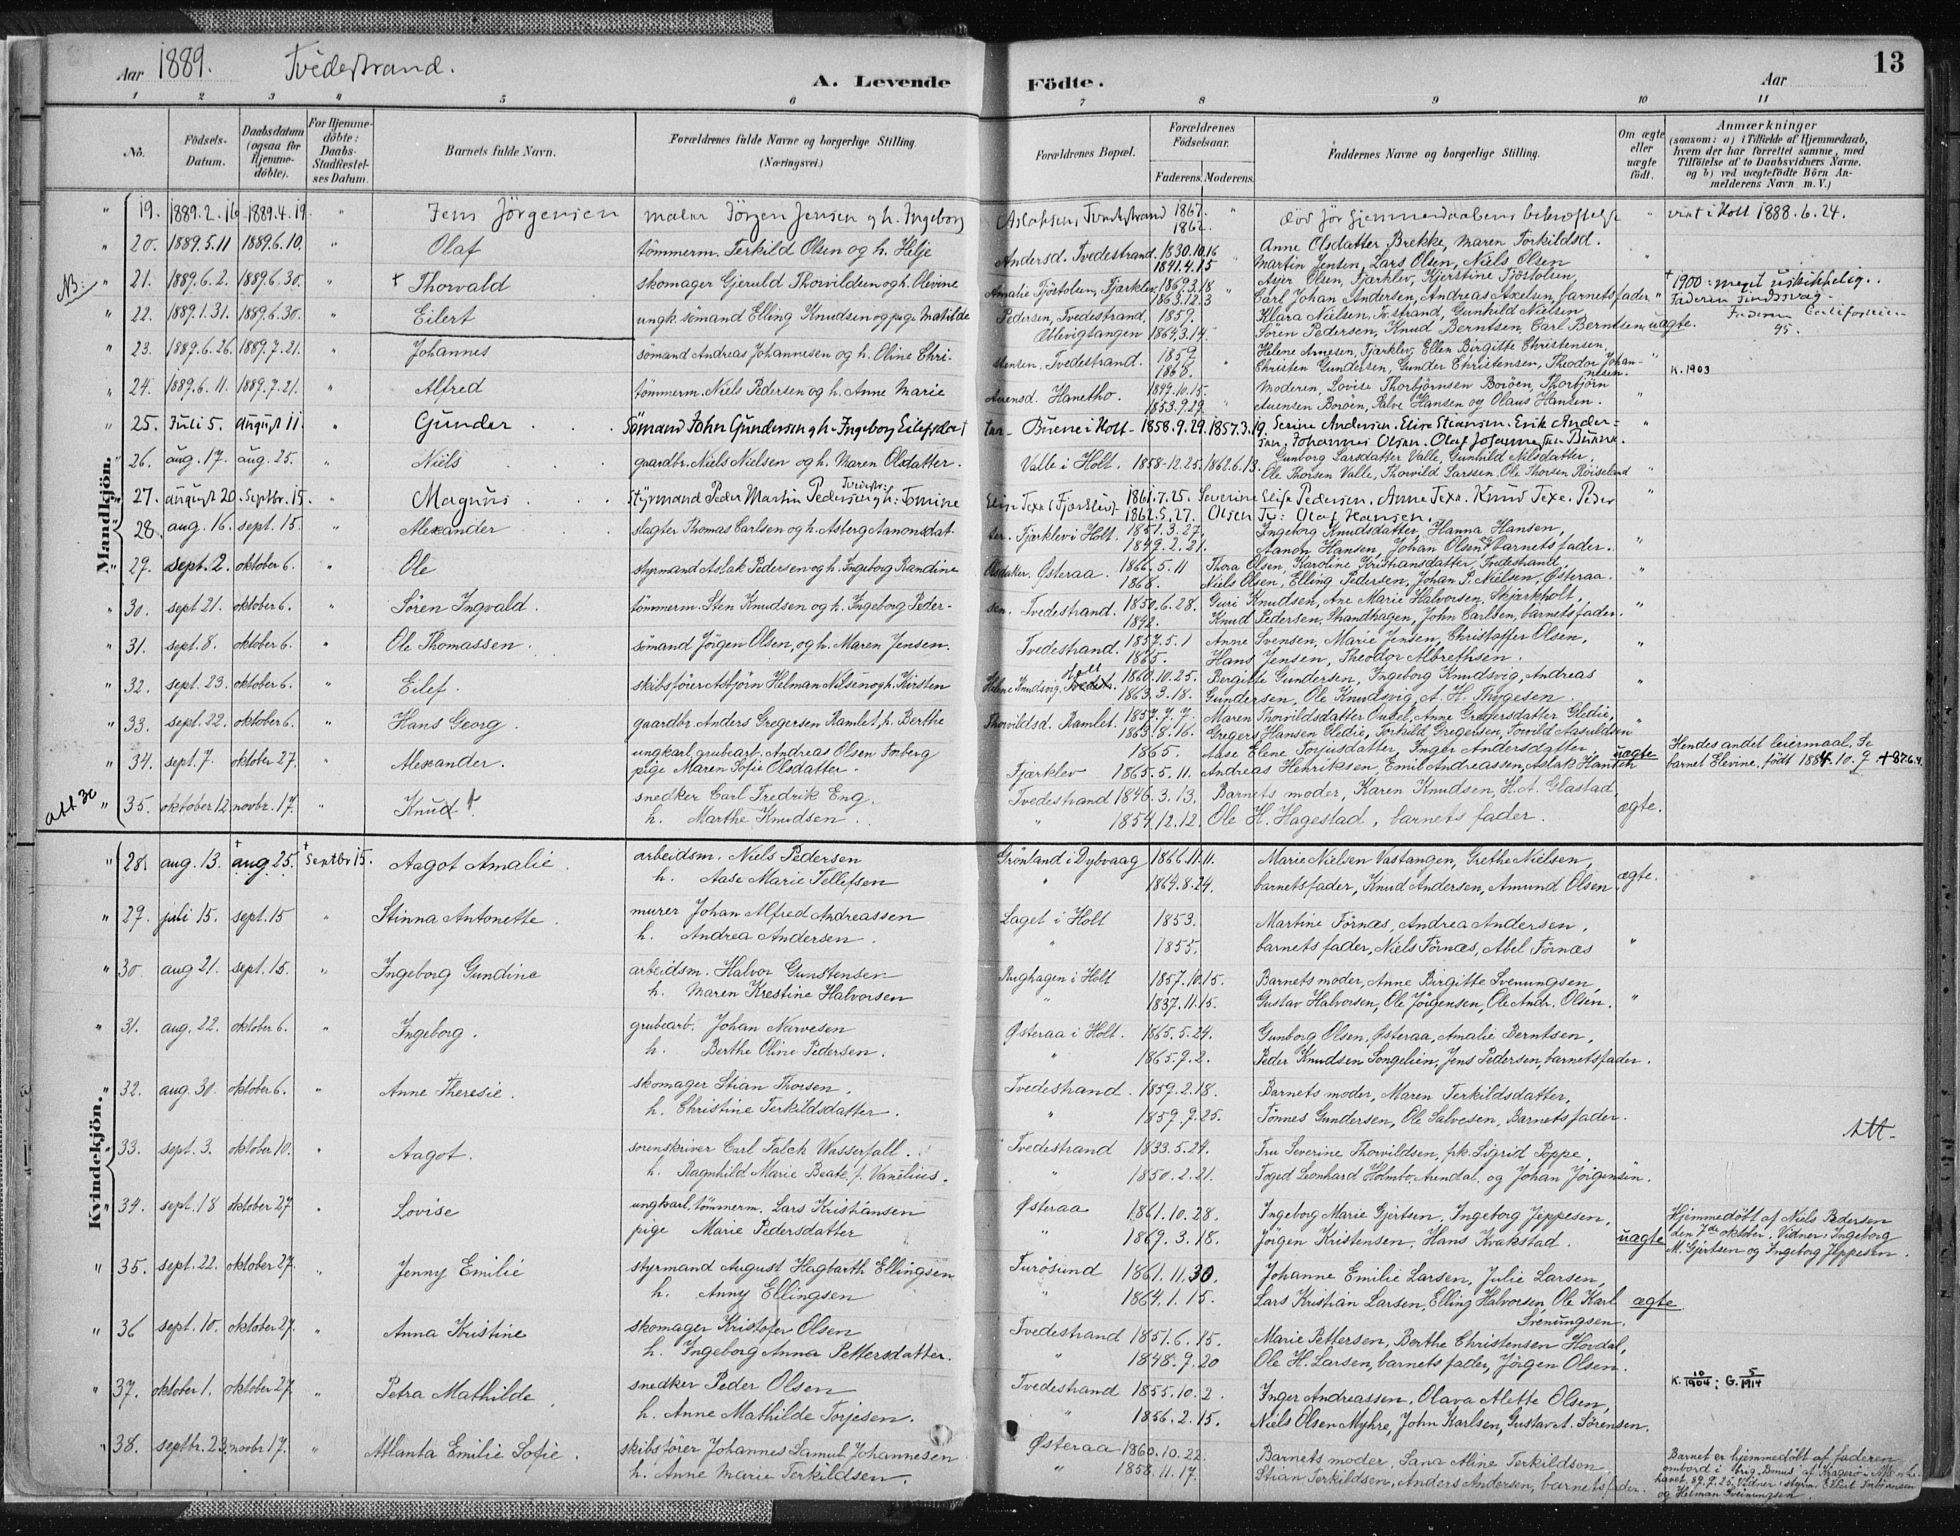 Aar 1889. Tvedestrand.
A. Levende Födte.
Aar
13
1 2 3 4 5 6 7 8 9 10 11
No.
Födsels-Datum.
Daabsdatum (ogsaa for Hjemme-döbte).
For Hjemme-döbte: Daabs-Stadfæstel-ses Datum.
Barnets fulde Navn.
Forældrenes fulde Navne og borgerlige Stilling. (Næringsvei.)
Forældrenes Bopæl.
Forældrenes Födselsaar.
Faderens. Moderens.
Faddernes Navne og borgerlige Stilling.
Om ægte eller uægte födt.
Anmærkninger (saasom: a) i Tilfælde af Hjemmedaab, hvem der har forrettet samme, med Tilföielse af to Daabsvidners Navne, og b) ved uægtefödte Börn An-melderens Navn m. V.)
Mandkjön.
19. 1889.2.16 1889.4.19. " Jens Jörgensen maler Jörgen Jensen og h. Ingeborg Aslaksen, Tvedestrand 1867. 1862. vint i Holt 1888.6.24.
20. 1889.5.11 1889.6.10. " Olaf tömmerm. Terkild Olsen og h. Helje Andersd. Tvedestrand. 1830.10.16 1841.4.15 Anne Olsdatter Brekke, Maren Torkildsd.
Martin Jensen, Lars Olsen, Niels Olsen
NB: 21. 1889.6.2. 1889.6.30. " + Thorvald skomager Gjeruld Thorvildsen og h. Olivine Amalie Tjöstolsen, Fjærklev. 1869.3.18 1863.12.3 Olsen, Fjærklev, Kjerstine Tjöstolsen,
Carl Johan Andersen, Andreas Axelsen, barnets fader. + 1900: meget
22. 1889.1.31. 1889.6.30. " Eilert ungk. sömand Elling Knudsen og pige Matilde Pedersen, Tvedestrand, 1859. 1864.3.14. Klara Nielsen, Tv.strand, Gunhild Nielsen
Sören Pedersen, Knud Berntsen, Carl Berntsen uægte. 95.
23. 1889.6.26. 1889.7.21. " Johannes sömand Andreas Johannesen og h. Oline Chri-stensen, Tvedestrand. 1859. 1868. Helene Arnesen, Fjærklev, Ellen Birgitte Christensen,
Christen Gundersen, Gunder Christensen, Theodor Johan-nesen.
24. 1889.6.11. 1889.7.21. " Alfred tömmerm. Niels Pedersen og h. Anne Marie Auensd. Hanetho. 1849.10.15. 1853.9.29. Moderen, Lovise Thorbjörnsen Boröen, Thorbjörn
Auensen Boröen, Salve Hansen og Olaus Hansen. K. 1903
25. Juli 5. August 11. " Gunder Sömand John Gundersen og h. Ingeborg Eilefsdat ter Buene i Holt 1858.9.29. 1857.3.19. Serine Andersen. Elise Stiansen. Erik Ander-
sen. Johannes Olsen. Olaf Johannesen Buene.
26. aug. 17. aug. 25. " Niels gaardbr. Niels Nielsen og h. Maren Olsdatter. Valle i Holt. 1858-12.25. 1862.6.13. Gunborg Larsdatter Valle, Gunhild Nilsdatter,
Ole Thorsen Valle, Thorvild Larssen. Ole Thorsen Röiseland
27. August 20. Septbr. 15. " Magnus Styrmand Peder Martin Pedersen og h. Tomine Elise Texe i Fjærklev. 1861.7.25. 1862.5.27. Severine Elise Pedersen. Anne Texe. Knud Texe. Peder
Olsen Tv: Olaf Hansen.
28. aug. 16. sept. 15. " Alexander slagter Thomas Carlsen og h. Asberg Aanonsdat-ter. Fjærklev i Holt. 1851.3.27. 1849.2.21. Ingeborg Knudsdatter, Hanna Hansen,
Aanon Hansen, Johan Olsen og barnets fader.
29. sept. 2. oktober 6. " Ole styrmand Aslak Pedersen og h. Ingeborg Randine Olsdatter. Østeraa. 1866.5.11 1868. Thora Olsen, Karoline Kristiansdatter, Tvedestrand,
Niels Olsen, Elling Pedersen, Johan P. Nielsen, Østeraa.
30. sept 21. oktober 6. " Sören Ingvald. tömmerm. Sten Knudsen og h. Ingeborg Peder-sen. Tvedestrand. 1850.6.28. 1842. Guri Knudsen, Ane Marie Halvorsen, Skjærkholt,
Knud Pedersen, Strandhagen, John Carlsen, barnets fader.
31. sept. 8. oktober 6. " Ole Thomassen. sömand Jörgen Olsen, og h. Maren Jensen. Tvedestrand. 1857.5.1 1865. Anne Svensen, Marie Jensen, Christoffer Olsen,
Hans Jensen, Theodor Albrethsen.
32. sept. 23. oktober 6. " Eilef. skibsförer Asbjörn Helman Nilsen og h. Kirsten Helene Knudsvig, Holt 1860.10.25. 1863.3.18. Bergitte Gundersen, Ingeborg Knudsvig, Andreas
Gundersen, Ole Knudsvig, A. H. Thygesen.
33. sept. 22. oktober 6. " Hans Georg. gaardbr. Anders Gregersen Ramlet, h. Berthe Thorvildsd. Ramlet. 1857.7.7. 1863.8.16. Maren Thorvildsdatter, Anne Gregersdatter Gledie,
Gregers Hansen Gledie, Torkild Gregersen, Torvild Aasulvdsen
34. sept. 7. oktober 27. " Alexander. ungkarl, grubearb. Andreas Olsen Torberg
pige Maren Sofie Olsdatter. Fjærklev 1865. 1865.5.11. Aase Elene Torjusdatter, Inger Andersdatter,
Andreas Henriksen, Emil Andreassen, Aslak Hansen uægte Hendes andet leiermaal. Se
barnet Elevine, födt 1884.10.7.
att. 30 35. oktober 12 novbr. 17. " Knud +. snedker Carl Fredrik Eng.
h. Marthe Knudsen. Tvedestrand 1846.3.13. 1854.12.12. Barnets moder, Karen Knudsen, H. A. Glastad,
Ole H. Hagestad, barnets fader. ægte.
Kvindekjön.
28. aug. 13. + aug 25. + Septbr 15. Aagot Amalie. arbeidsm. Niels Pedersen
h. Aase Marie Tellefsen Grönland i Dybvaag 1866.11.11. 1864.8.24. Marie Nielsen Vastangen, Grethe Nielsen,
barnets fader, Knud Andersen, Amund Olsen. ægte.
29. juli 15. sept. 15 " Stinna Antonette. murer Johan Alfred Andreassen
h. Andrea Andersen. Laget i Holt 1853. 1855. Martine Törnæs, Andrea Andersen,
barnets fader, Niels Törnæs, Abel Törnæs "
30. aug 21. sept. 15. " Ingeborg Gundine arbeidsm. Halvor Gunstensen
h. Maren Krestine Halvorsen Rughagen i Holt 1857.10.15. 1837.11.15. Barnets moder, Anne Birgitte Svenungsen,
Gustav Halvorsen, Ole Jörgensen, Ole Andr. Olsen. "
31. aug. 22. oktober 6. " Ingeborg. grubearb. Johan Narvesen
h. Berthe Oline Pedersen. Østeraa i Holt. 1865.5.24. 1865.9.2. Gunborg Olsen, Østeraa, Amalie Berntsen,
Peder Knudsen Songelien, Jens Pedersen, barnets fader.
32. aug. 30. oktober 6. " Anne Theresie. skomager Stian Thorsen.
h. Christine Terkildsdatter. Tvedestrand. 1859.2.18. 1859.9.25. Barnets moder, Maren Terkildsdatter,
Tönnes Gundersen, Ole Salvesen, Barnets fader.
33. sept. 3. oktober 10. " Aagot. sorenskriver Carl Falch Wasserfall.
h. Ragnhild Marie Beate, f. Vanelius. Tvedestrand 1833.5.24. 1850.2.21. Fru Severine Thorvildsen, frk. Sigrid Poppe,
Foged Leonhard Holmbo, Arendal. og Johan Jörgensen. Att.
34. sept. 18 oktober 27. " Lovise ungkarl, tömmerm. Lars Kristiansen
pige Marie Pedersdatter Østeraa 1861.10.28. 1869.3.18. Ingeborg Marie Gjertsen, Ingeborg Jeppesen,
Jörgen Kristensen, Hans Kvakstad. uægte Hjemmedøbt af Niels Pedersen
den 7de oktober. Vidner: Ingeborg
M. Gjertsen og Ingeborg Jeppesen.
35. sept. 22. oktober 27. " Jenny Emilie styrmand August Hagbarth Ellingsen
h. Anny Ellingsen Furösund 1861.11.30. 1864.1.15. Johanne Emilie Larsen, Julie Larsen,
Lars Kristian Larsen, Elling Halvorsen, Ole Karl Svenungsen. ægte
36 sept. 10. oktober 27. " Anna Kristine skomager Kristofer Olsen
h. Ingeborg Anna Pettersdatter. Tvedestrand 1851.6.15. 1848.9.20 Marie Pettersen, Berthe Christensen Hovdal,
Ole H. Larsen, barnets fader, Jörgen Olsen.
37. oktober 1. oktober 27. " Petra Mathilde snedker Peder Olsen
h. Anne Mathilde Torjesen. Tvedestrand 1855.10.2. 1856.2.15. Inger Andreassen, Olava Alette Olsen,
Niels Olsen Myhre, John Karlsen, Gustav A. Sörensen. K. 10/1904; G. 5/1914
38. septbr. 23. novbr 17. " Atlanta Emilie Sofie. skibsförer Johannes Samuel Johannesen
h. Anne Marie Terkildsen. Østeraa 1860.10.22. 1858.11.17. Barnets moder, Sana Aline Terkildsen
Stian Terkildsen, Anders Andersen, barnets fader. Barnet er hjemmedøbt af faderen
ombord i brig af Kragerø
havet 89.9.25. Vidner: styrm.
og Helman Sveinungsen.